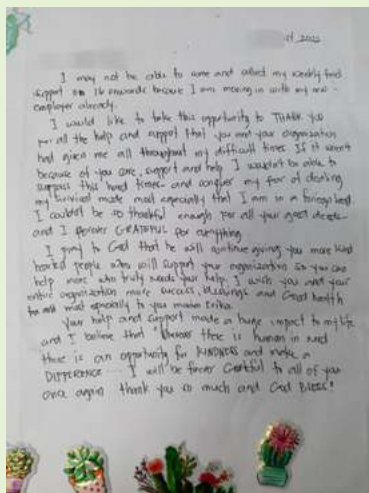 2022
I may not be able to come and collect my weekly food
support on 16 onwards because I am moving in with my new
employer already.
I would like to take this opportunity to THANK YOU
for all the help and support that you and your organization
had given me all throughout my difficult times. If it wasn't
because of your care, support and help I wouldn't be able to
surpass this hard times and conquer my fear of dealing
my survival mode most especially that I am in a foreign land.
I couldn't be so thankful enough for all your good deeds
and I forever GRATEFUL for everything.
I pray to God that he will continue giving you more kind
hearted people who will support your organization so you can
help more who truly needs your help. I wish you and your
entire organization more success, blessings and Good health
most especially to you ma'am Erika.
Your help and support made a huge impact to my life
and I believe that "Wherever there is human in need
there is an opportunity for KINDNESS and make a
DIFFERENCE .... I will be forever Grateful to all of you
once again thank you so much and God BLESS!